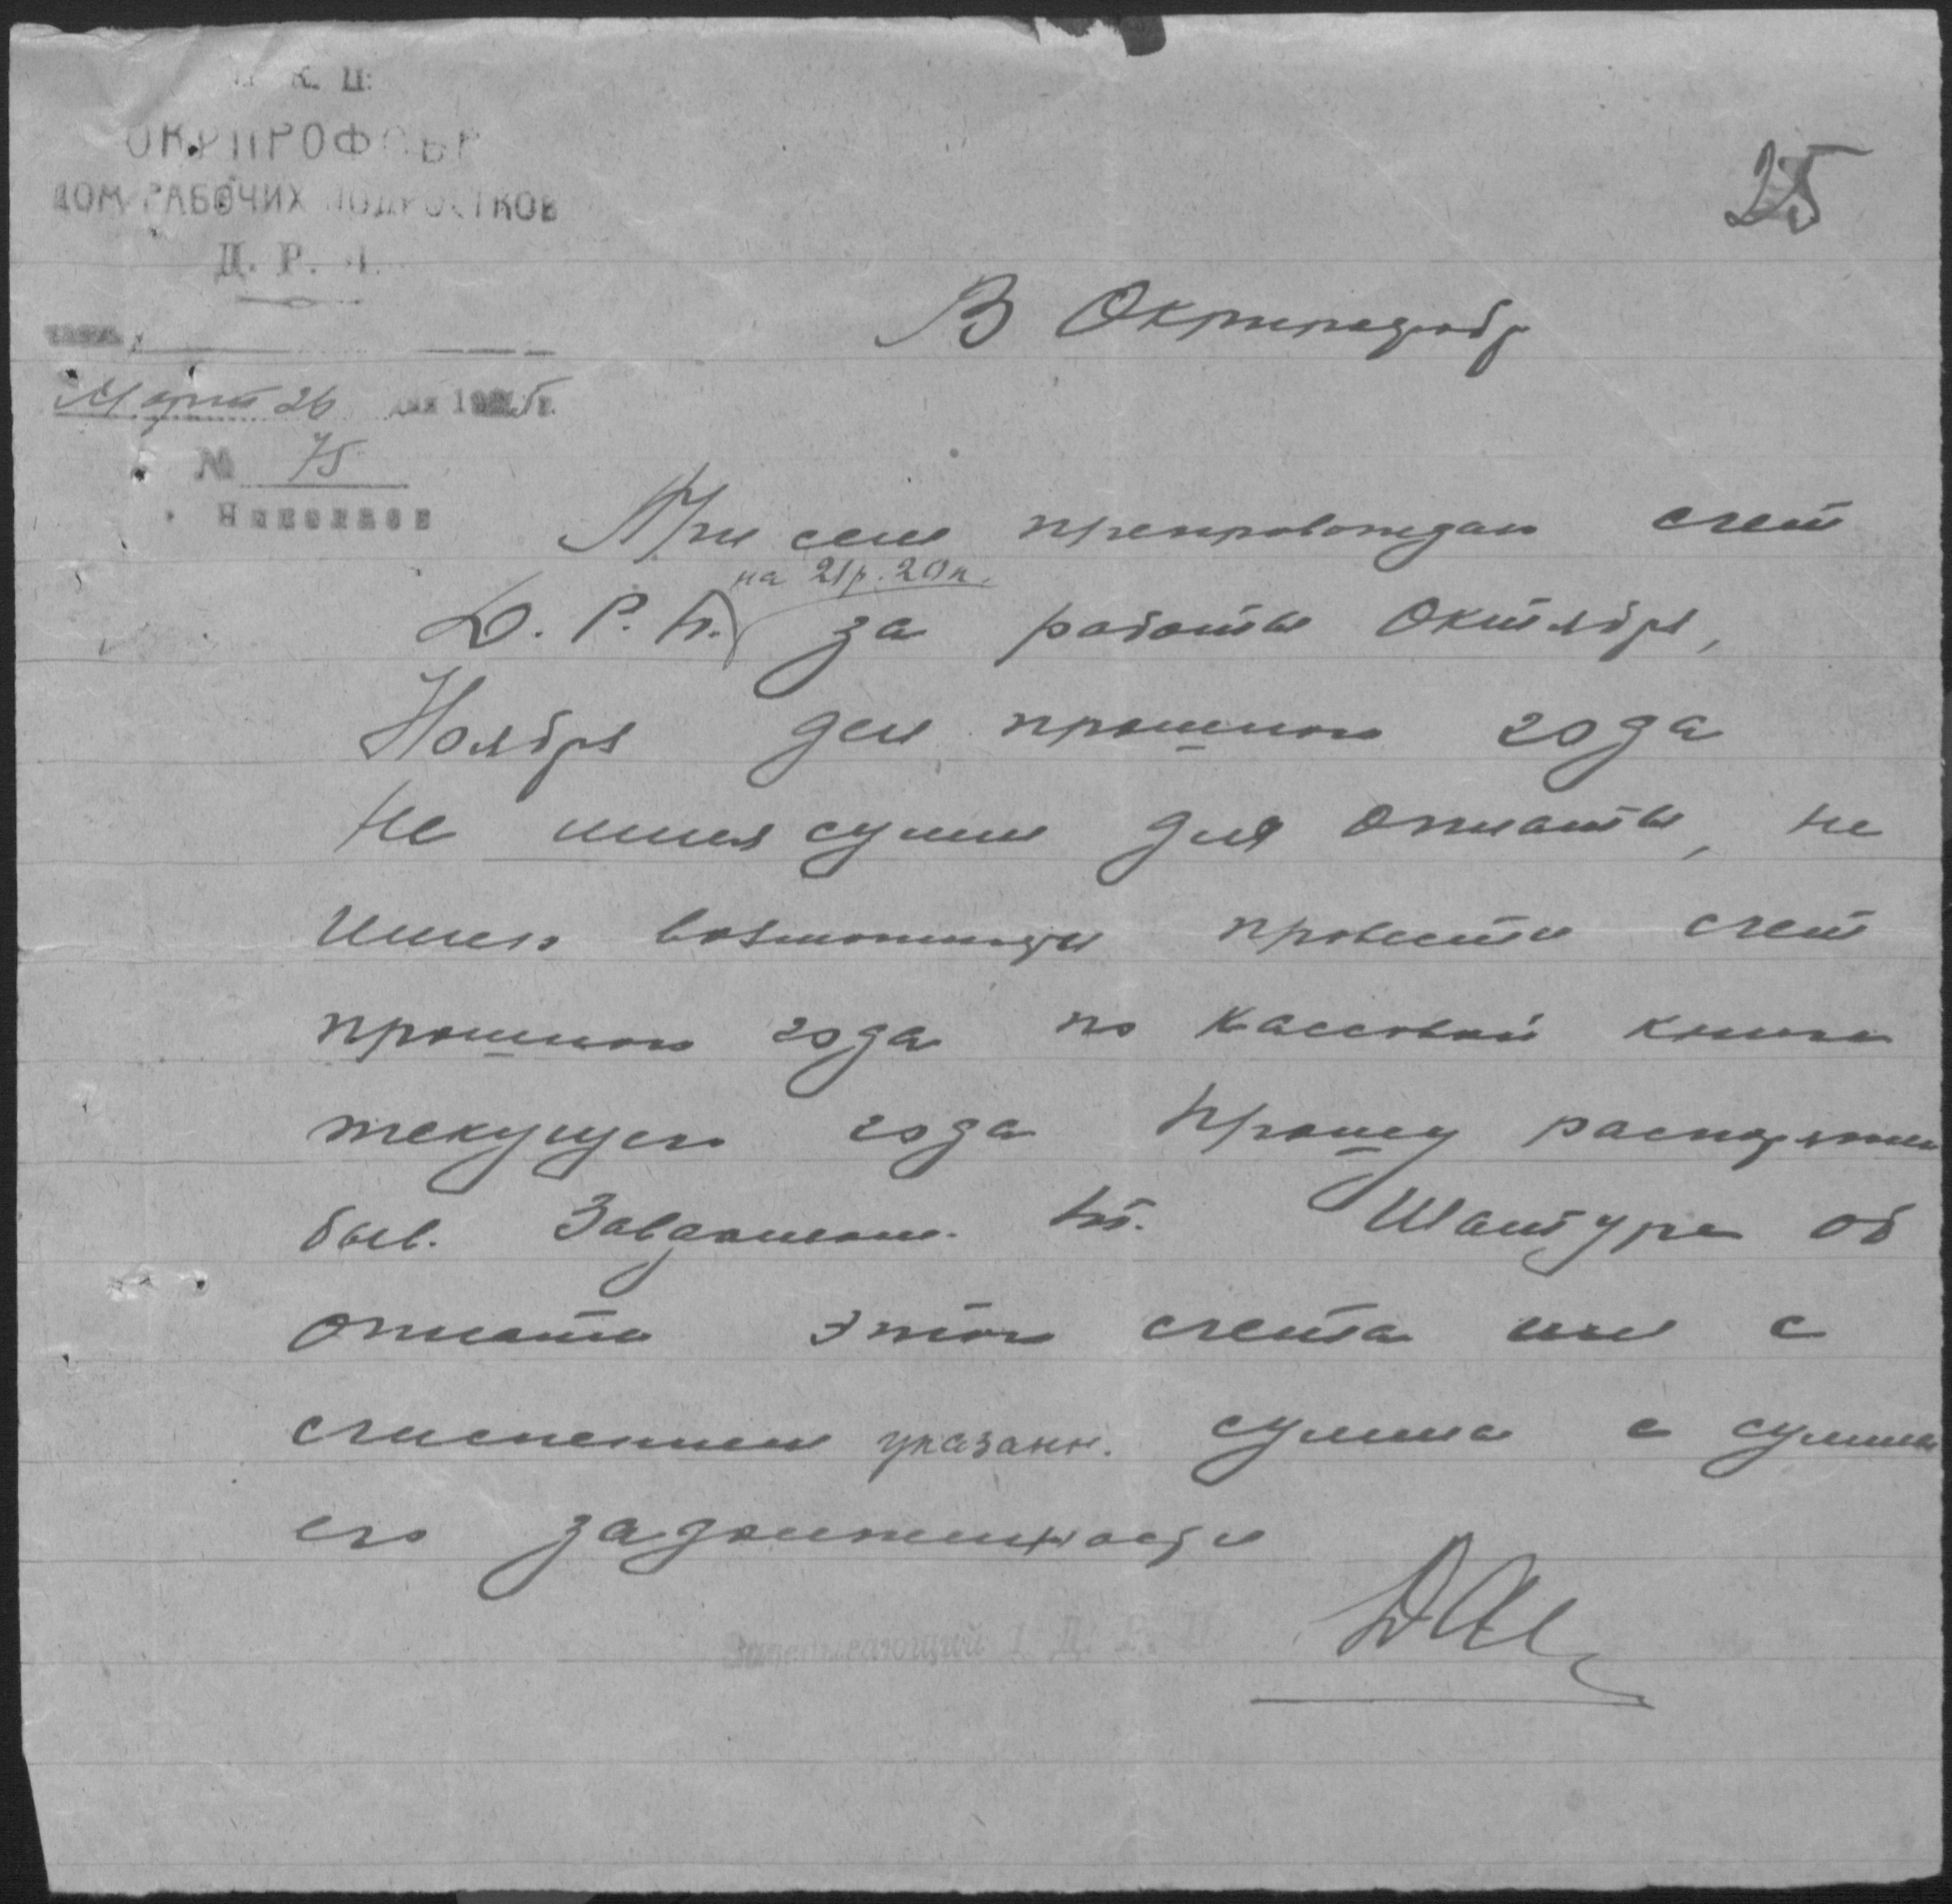 Н. К. П.
ОКРПРОФОБР
ДОМ РАБОЧИХ ПОДРОСТКОВ
Д. Р. П.
25
В Окрпрофобр
Март 26 дня 1925 г.
№ 75
Николаев
При сем препровождаю счет
на 21р. 20к.
Д. Р. П. за работы Октября,
Ноября дек прошлого года
Не имея сумм для оплаты, не
имея возможности провести счет
прошлого года по кассовой книге
текущего года Прошу распоряжен
быв. Завдомом т. Шантуре об
оплате этого счета или с
счислением указанн. суммы с суммы
его задолженности
Заведывающий 1 Д. Р. П.